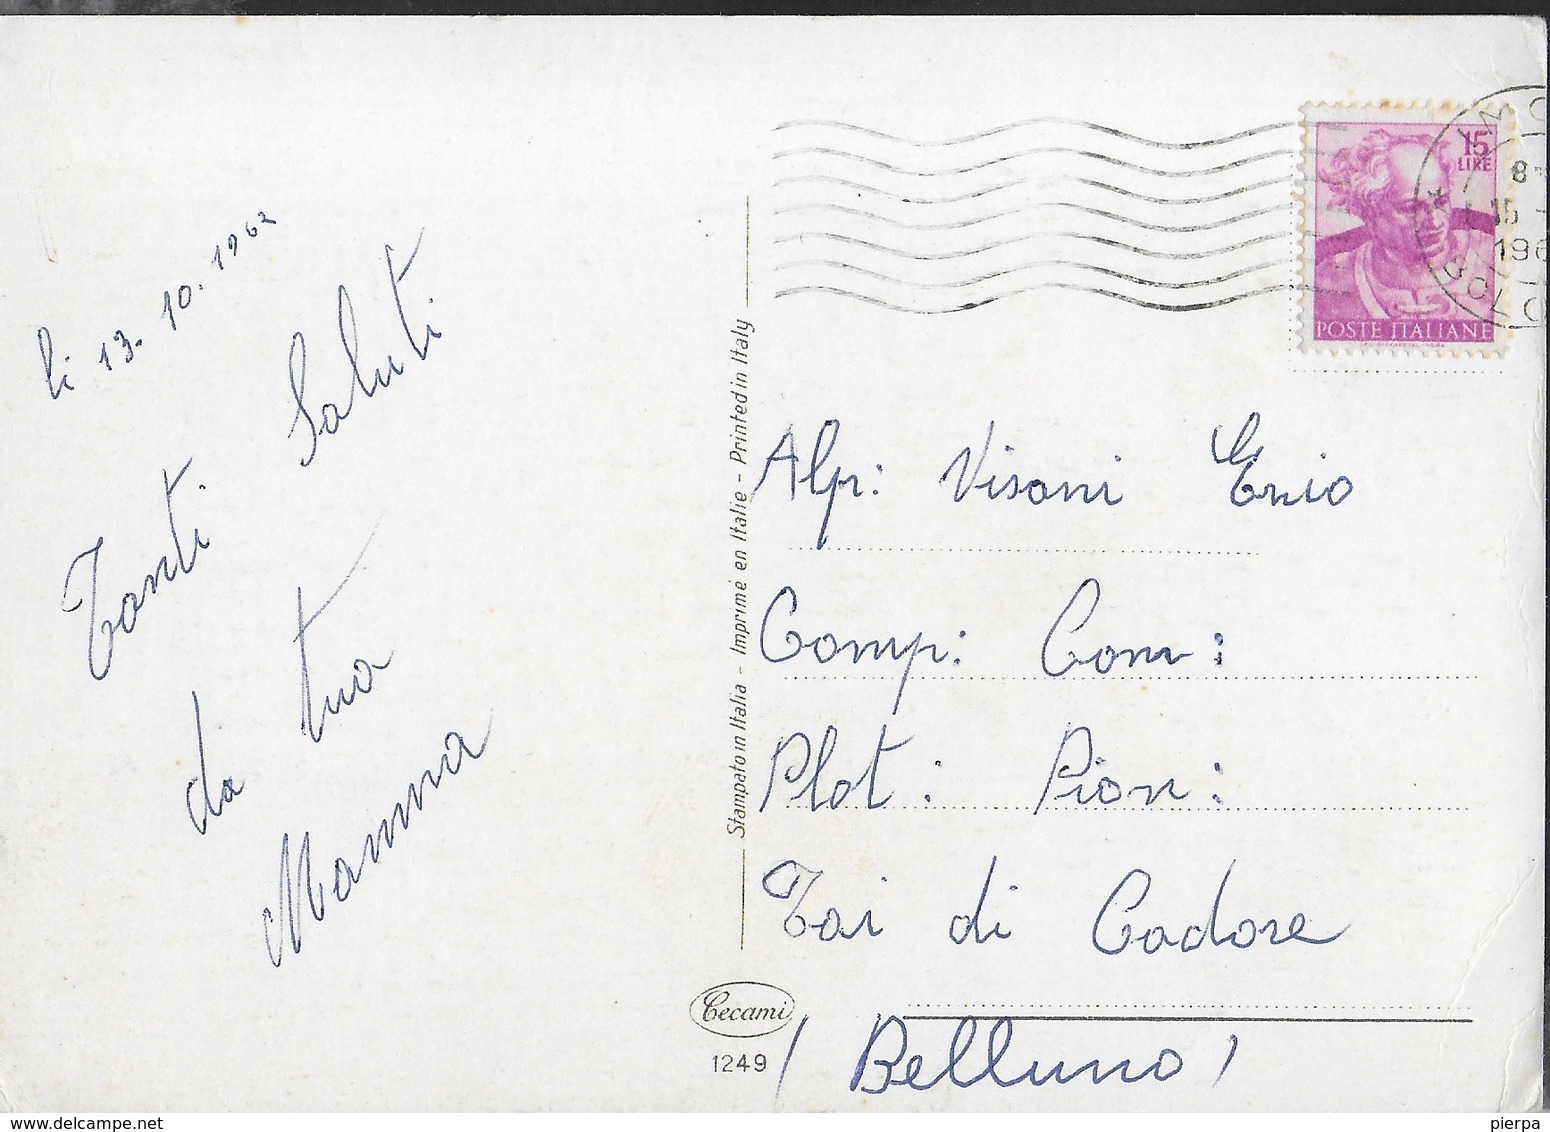 li 13. 10. 1962
Tanti Saluti
da tua
Mamma
Stampato in Italia - Imprimé en Italie - Printed in Italy
Cecami
1249
15
LIRE
POSTE ITALIANE
8
15
196
Alp: Visani Enio
Comp: Com:
Plot: Pion:
Tai di Cadore
(Belluno)
pierpa